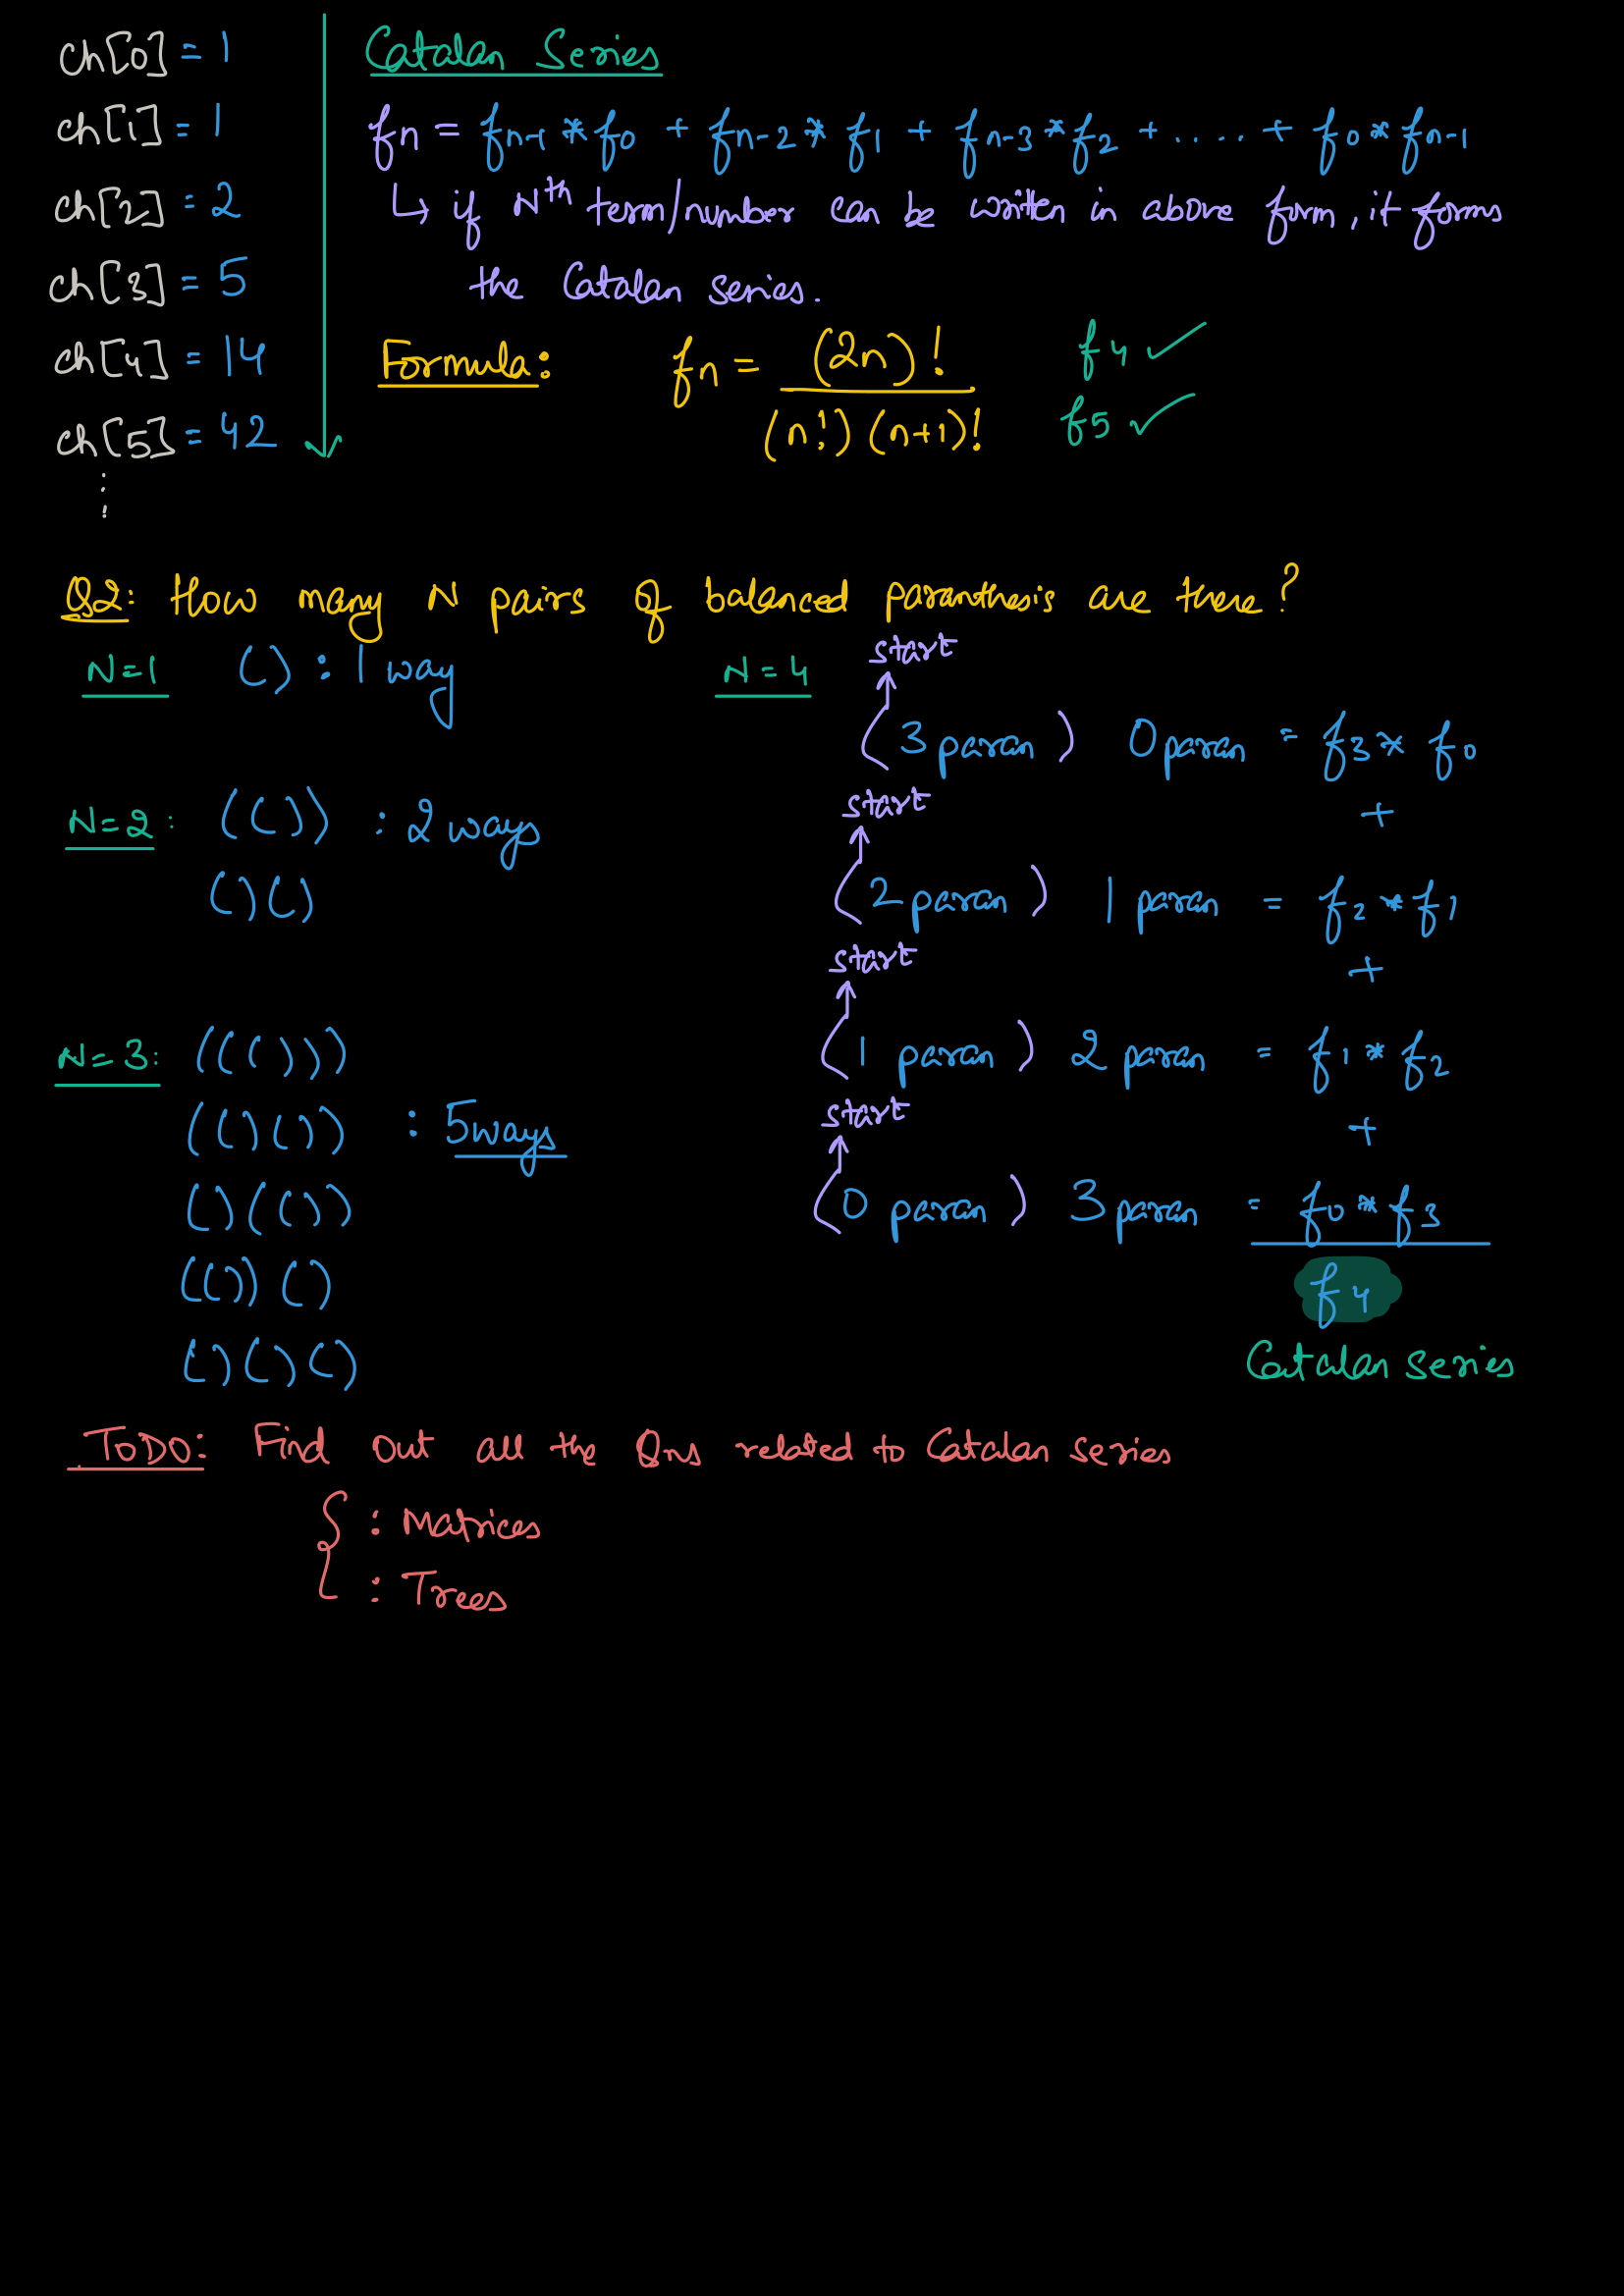 ch[0] = 1
ch[1] = 1
ch[2] = 2
ch[3] = 5
ch[4] = 14
ch[5] = 42
⋮
Catalan Series
fn = fn-1 * f0 + fn-2 * f1 + fn-3 * f2 + ..... + f0 * fn-1
↳ if Nth term/number can be written in above form, it forms
the Catalan series.
Formula: fn = (2n)! / (n!) (n+1)!
f4 ✓
f5 ✓
Q2: How many N pairs of balanced paranthesis are there?
N=1 () : 1 way
N=2 : (()) : 2 ways
()()
N=3: ((()))
(()()) : 5 ways
()(())
(())()
()()()
N=4
start
(3 paran) 0 paran = f3 * f0
+
start
(2 paran) 1 paran = f2 * f1
+
start
(1 paran) 2 paran = f1 * f2
+
start
(0 paran) 3 paran = f0 * f3
f4
Catalan series
TODO: Find out all the Qns related to Catalan series
{ : Matrices
: Trees